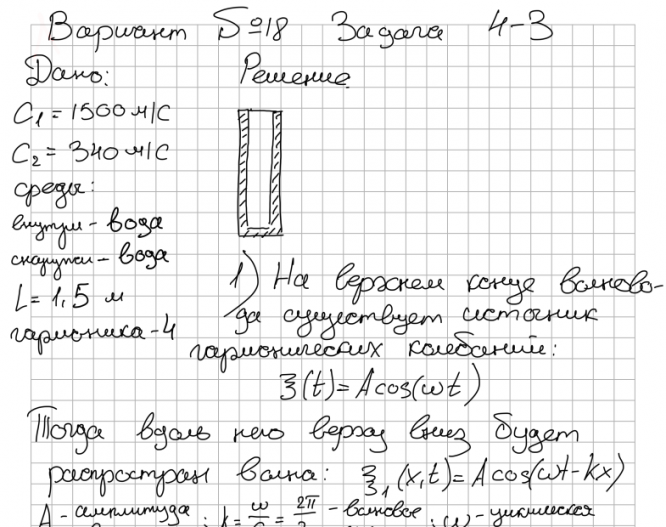 Вариант №18 Задача 4-3
Дано: Решение
C₁ = 1500 м/с
C₂ = 340 м/с
среды:
внутри - вода
снаружи - вода
L = 1,5 м
гармоника - 4
1) На верхнем конце волново-
да существует источник
гармонических колебаний:
ξ(t) = A cos(ωt)
Тогда вдоль него сверху вниз будет
распростран волна: ξ₁(x,t) = A cos(ωt - kx)
A - амплитуда ; k = ω = 2π - волновое ; ω - циклическая